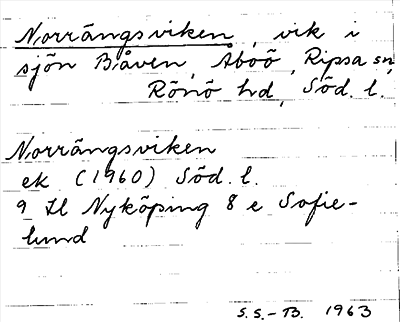 Norrängsviken, vik i
sjön Båven, Åboö, Ripsa sn,
Rönö hd, Söd. l.
Norrängsviken
ek (1960) Söd. l.
9 H Nyköping 8 e Sofie-
lund
S.S.-B. 1963